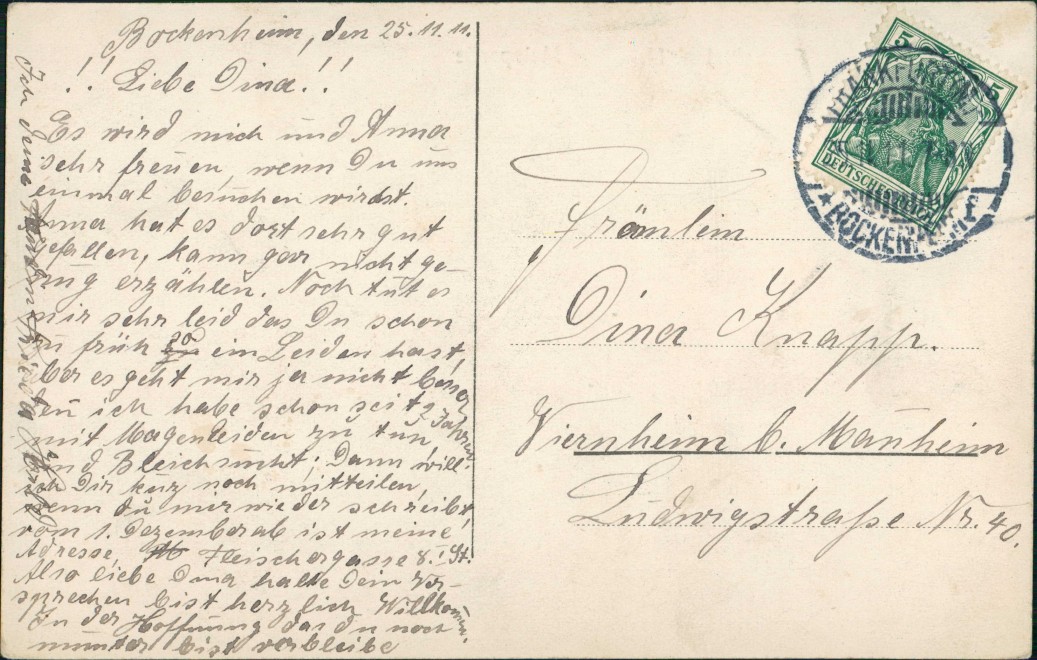 Bockenheim, den 25.11.11.
!! Liebe Dina!!
Es wird mich und Anna
sehr freuen, wenn Du uns
einmal besuchen wirdst.
Anna hat es dort sehr gut
gefallen, kann gar nicht ge-
nug erzählen. Noch tut es
mir sehr leid das Du schon
so früh so ein Leiden hast,
ber es geht mir ja nicht besser
ich habe schon seit 2 Jahren
mit Magenleiden zu tun,
und Bleichsucht; Dann will
ich Dir kurz noch mitteilen,
wenn du mir wieder schreibst
vom 1. Dezember ab ist meine
Adresse, Fleischergasse 8. I St.
Also liebe Dina halte Dein Ver-
sprechen bist herzlich Willkomen.
In der Hoffnung das du noch
munter bist verbleibe
Ich deine
Fräunlein
Dina Knapp.
Viernheim b. Manheim
Ludwigstraße Nr. 40.
5 5
DEUTSCHES
FRANKFURT
BOCKENHEIM